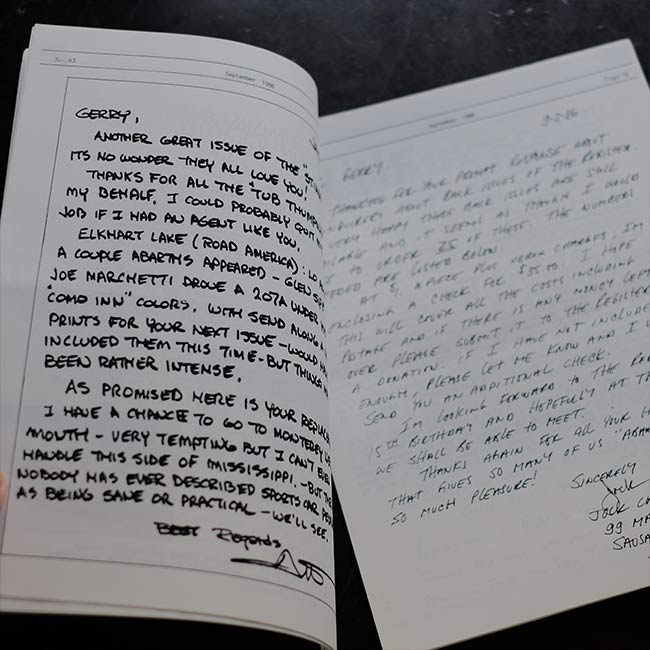 No.43
September 1986
GERRY,
ANOTHER GREAT ISSUE OF THE
ITS NO WONDER THEY ALL LOVE YOU!
THANKS FOR ALL THE "TUB
MY BEHALF. I COULD PROBABLY QUIT
JOB IF I HAD AN AGENT LIKE YOU.
ELKHART LAKE (ROAD AMERICA):
A COUPLE ABARTHS APPEARED - GLEN
JOE MARCHETTI DROVE A 207A UNDER
"COMO INN" COLORS. WITH SEND ALONG
PRINTS FOR YOUR NEXT ISSUE - WOULD
INCLUDED THEM THIS TIME - BUT THINGS
BEEN RATHER INTENSE.
AS PROMISED HERE IS YOUR
I HAVE A CHANCE TO GO TO MONTEREY
MOUTH - VERY TEMPTING BUT I CAN'T
HANDLE THIS SIDE OF MISSISSIPPI. - BUT
NOBODY HAS EVER DESCRIBED SPORTS CAR
AS BEING SANE OR PRACTICAL - WE'LL SEE.
Best Regards
9-2-86
GERRY,
THANKYOU FOR YOUR PROMPT RESPONSE ABOUT
ABOUT BACK ISSUES OF THE REGISTER.
VERY HAPPY THESE BACK ISSUES ARE STILL
AND IT SEEMS AS THOUGH I WOULD
TO ORDER 25 OF THESE. THE NUMBERS
ARE LISTED BELOW.
AT $ APIECE PLUS CHARGES, I'M
ENCLOSING A CHECK FOR $55.00. I HOPE
THIS WILL COVER ALL THE COSTS INCLUDING
POSTAGE AND IF THERE IS ANY MONEY LEFT
OVER PLEASE SUBMIT IT TO THE REGISTER
A DONATION. IF I HAVE NOT INCLUDED
ENOUGH, PLEASE LET ME KNOW AND I
SEND YOU AN ADDITIONAL CHECK.
I'M LOOKING FORWARD TO THE
15th BIRTHDAY AND HOPEFULLY AT
WE SHALL BE ABLE TO MEET.
THANKS AGAIN FOR ALL YOUR
THAT GIVES SO MANY OF US
SO MUCH PLEASURE!
SINCERELY
Jock
JOCK
99